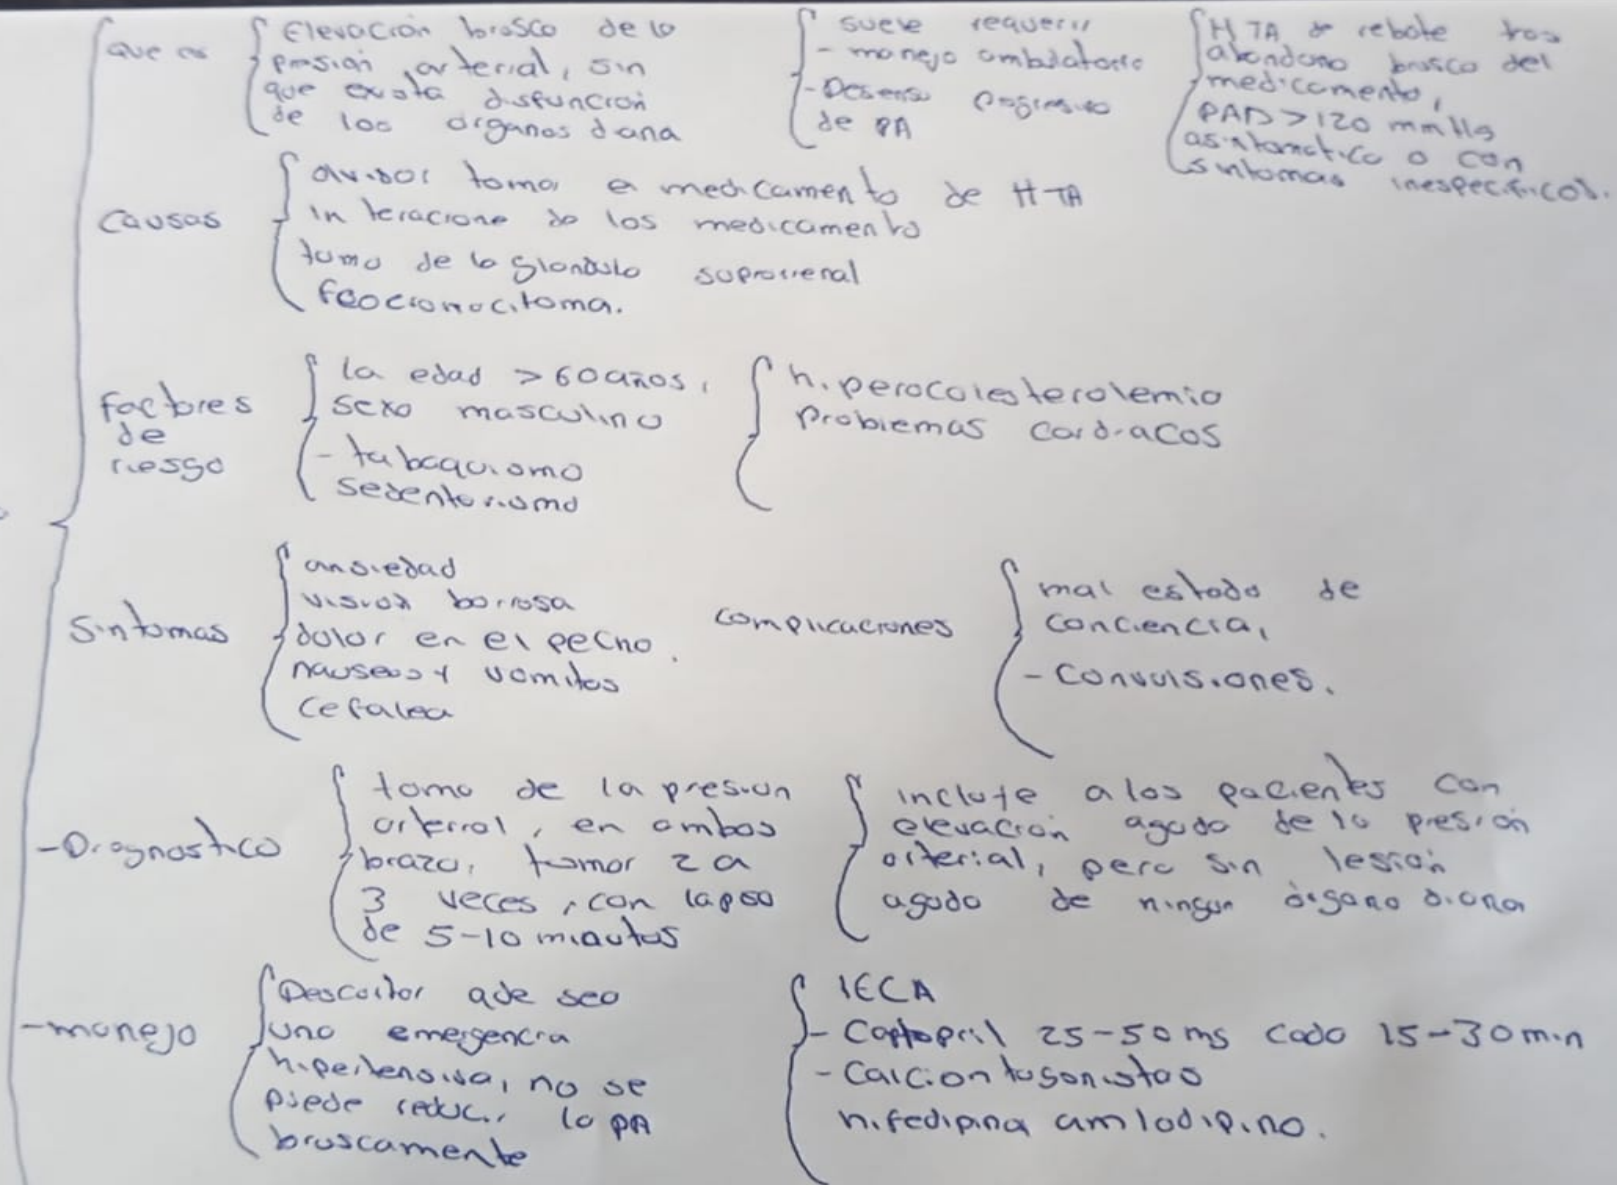 que es
Elevación brosco de lo
presión arterial, sin
que exista disfunción
de los organos diana
suele requerir
- manejo ambulatorio
- Descenso progresivo
de PA
HTA de rebote tras
abandono brusco del
medicamento,
PAD > 120 mmHg
asintomatico o con
sintomas inespecificos.
Causas
toma medicamento de HTA
de los medicamento
de la glandula suprarrenal
factores
de
riesgo
la edad > 60 años,
sexo masculino
- tabaquismo
sedentarismo
hiperocolesterolemia
problemas cardiacos
Sintomas
ansiedad
visión borrosa
dolor en el pecho.
nauseas y vomitos
Cefalea
complicaciones
mal estado de
conciencia,
- Convulsiones.
- Diagnostico
toma de la presion
arterial, en ambos
brazo, tomar 2 a
3 veces, con lapso
de 5-10 minutos
incluye a los pacientes con
elevación aguda de la presión
arterial, pero sin lesión
aguda de ningun órgano diana
- manejo
Descartar que sea
una emergencia
hipertensiva, no se
puede reducir la PA
bruscamente
IECA
- Captopril 25-50 mg cada 15-30 min
- Calcioantagonistas
nifedipina amlodipino.